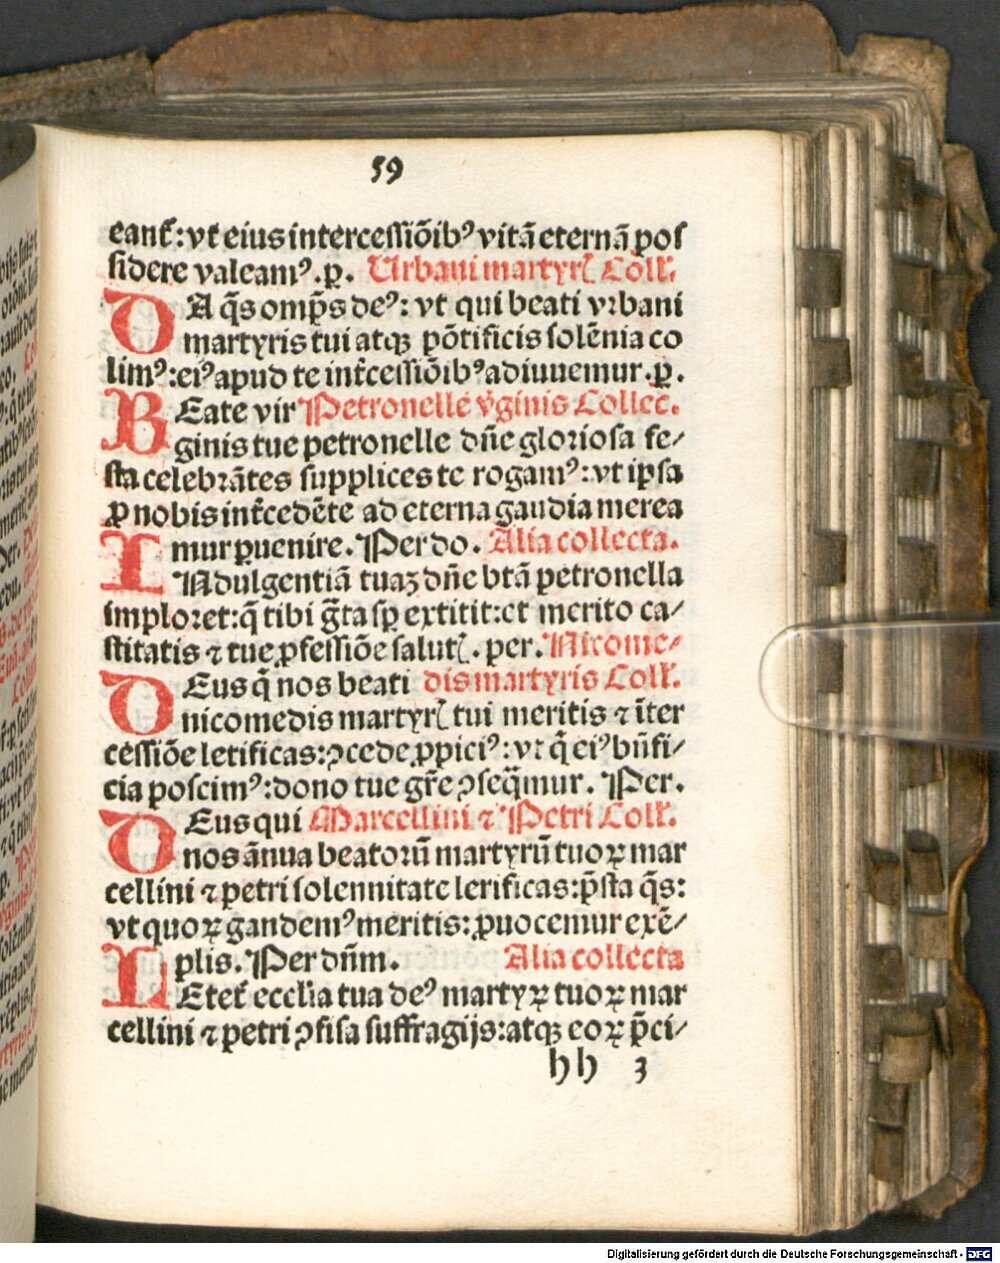 59
eant᷑: vt eius intercessiõibꝰ vitã eternã pos
sidere valeamꝰ.p̱. Urbani martyrꝭ Coll᷑.
DA q̃s omp̃s deꝰ: vt qui beati vrbani
martyris tui atqꝫ põtificis solẽnia co
limꝰ:eiꝰ apud te int᷑cessiõibꝰ adiuuemur.p̱.
BEate vir Petronelle v̾ginis Collec.
ginis tue petronelle dñe gloriosa fe⸗
sta celebrãtes supplices te rogamꝰ: vt ipsa
ꝓ nobis int᷑cedẽte ad eterna gaudia merea
mur ꝑuenire. Per do. Alia collecta.
INdulgentiã tuaꝫ dñe btã petronella
imploret: q̃ tibi g̃ta sꝑ extitit: et merito ca⸗
stitatis ⁊ tue ꝓfessiõe salutꝭ. per. Nicome⸗
DEus q̃ nos beati dis martyris Coll᷑.
nicomedis martyrꝭ tui meritis ⁊ ĩter
cessiõe letificas: ꝯcede ꝓpiciꝰ: vt q̃ eiꝰ bñfi⸗
cia poscimꝰ: dono tue gr̃e ꝯseq̃mur. Per.
DEus qui Marcellini ⁊ Petri Coll᷑.
nos ãnua beatorũ martyrũ tuoꝝ mar
cellini ⁊ petri solennitate letificas: p̃sta q̃s:
vt quoꝝ gandemꝰ meritis: ꝓuocemur exẽ⸗
plis. Per dñm. Alia collecta
LEtet᷑ eccl̃ia tua deꝰ martyꝝ tuoꝝ mar
cellini ⁊ petri ꝯfisa suffragijs: atqꝫ eoꝝ p̃ci⸗
hh 3
Digitalisierung gefördert durch die Deutsche Forschungsgemeinschaft - DFG